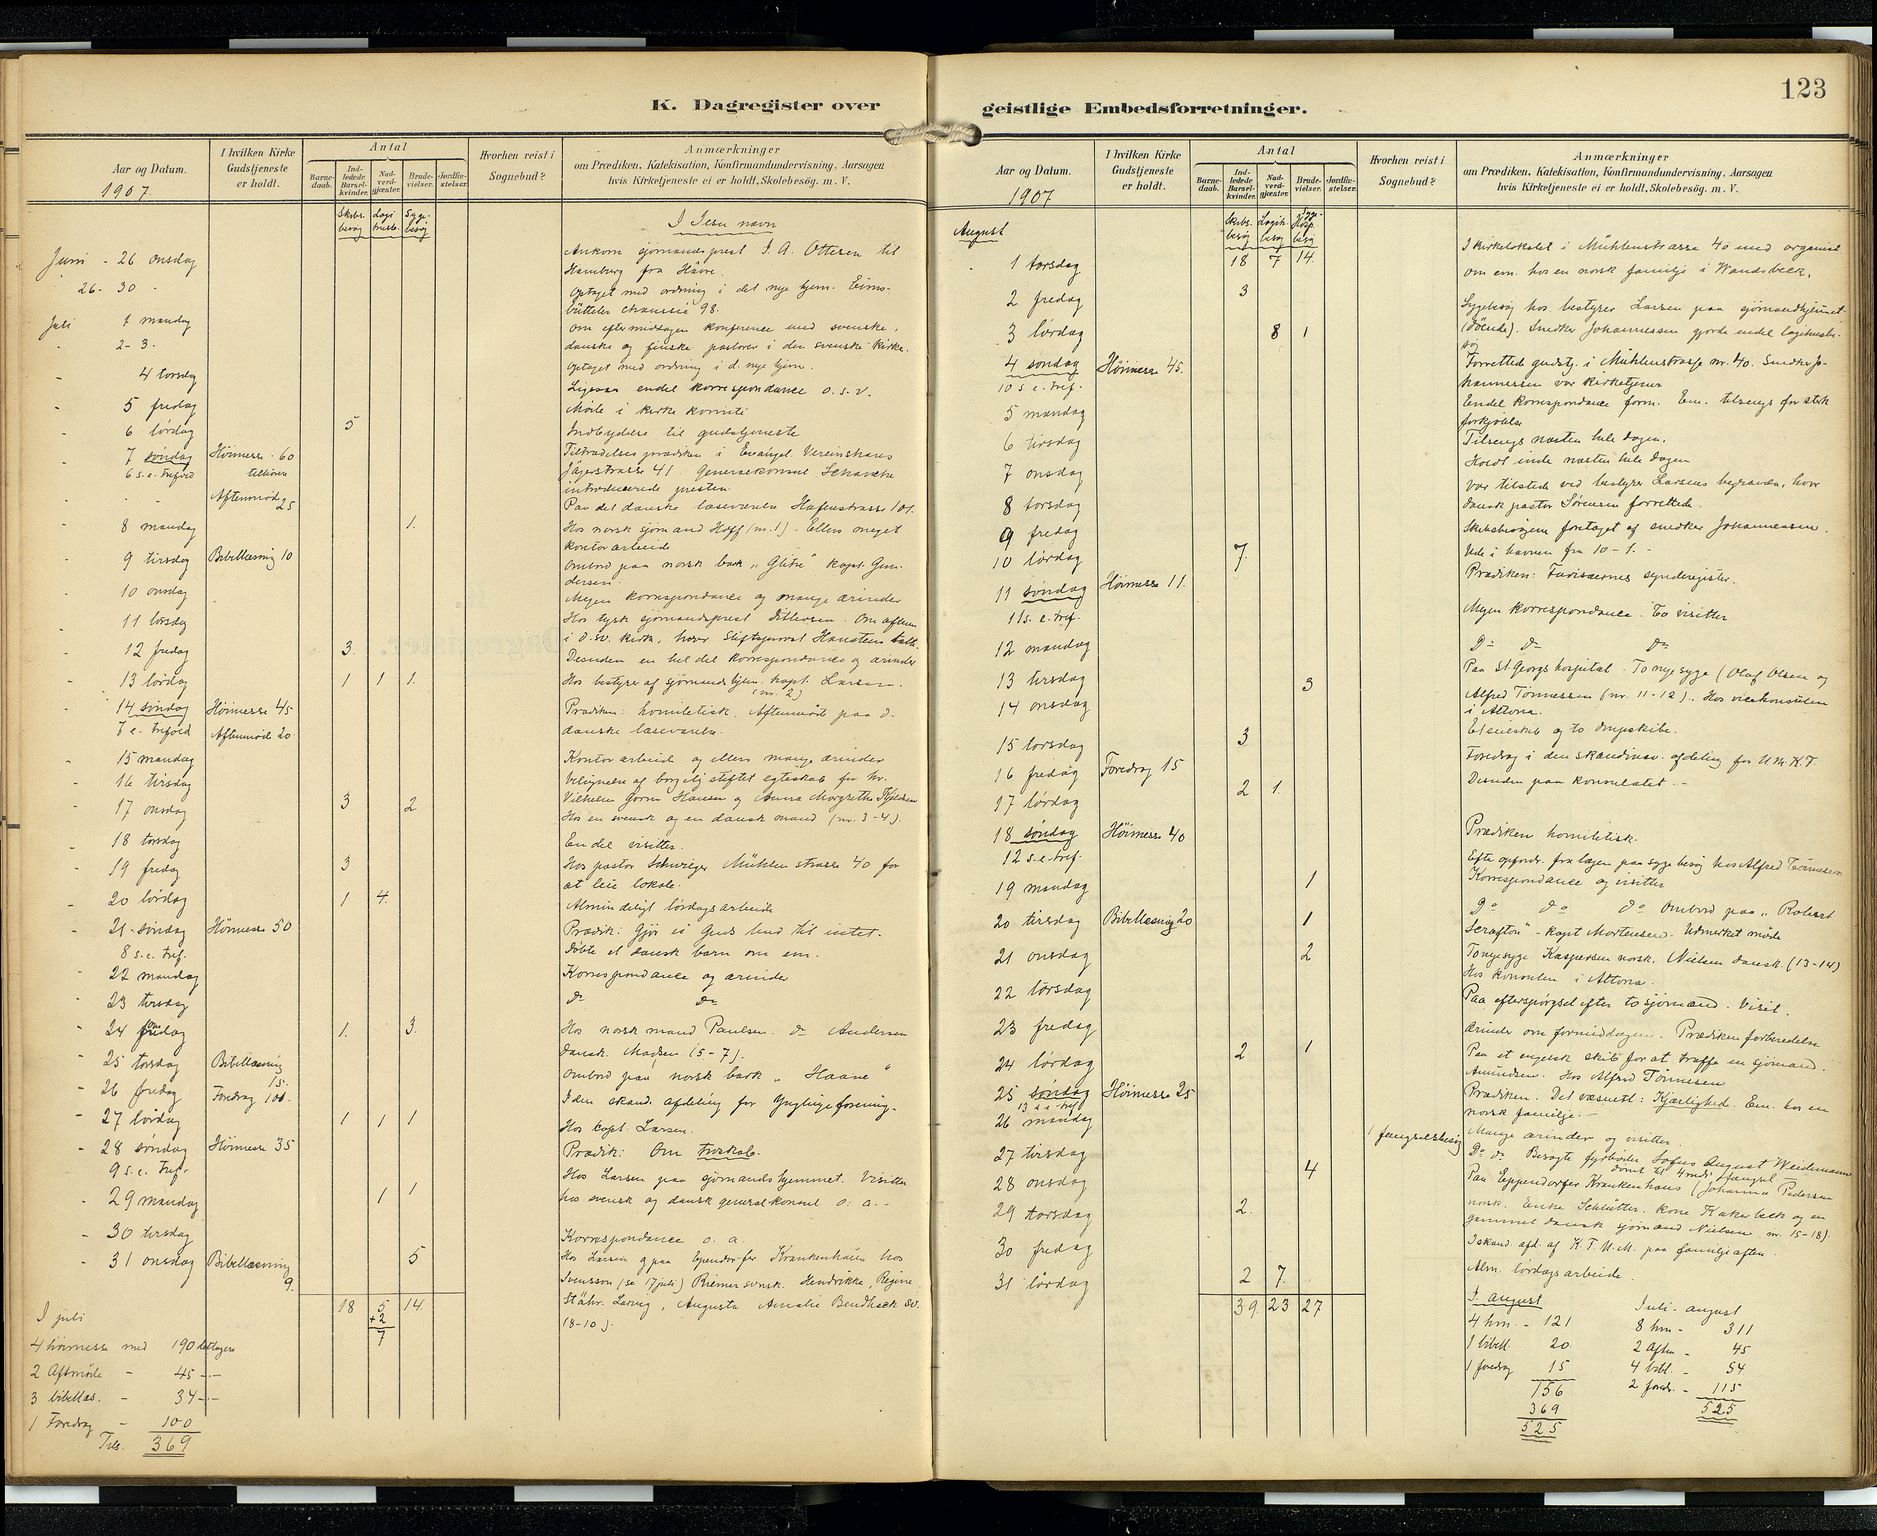 K. Dagregister over
Aar og Datum.
I hvilken Kirke Gudstjeneste er holdt.
Antal
Barnedaab.
Indledede Barselkvinder.
Nadverdgjæster.
Brudevielser.
Jordfæstelser.
Hvorhen reist i Sognebud?
Anmærkninger
om Prædiken, Katekisation, Konfirmandundervisning, Aarsagen
hvis Kirketjeneste ei er holdt, Skolebesög. m. V.
1907.
Skibsbesög
Syge-besög
I Jesu navn
Juni - 26 onsdag
Ankom sjömandsprest I. A. Ottesen til
Hamburg fra Hävre.
26 - 30 -
Optaget med ordning i det nye hjem. Eims-
bütteler chaussie 98.
Juli 1 mandag
Om eftermiddagen konference med svenske,
danske og finske pastorer i den svenske kirke.
2-3.
Optaget med ordning i d. nye hjem.
4 torsdag
Ligesaa endel korrespondance o. s. v.
5 fredag
Möte i kirke komite
6 lördag 5
Indbydelse til gudstjeneste
7 söndag Höimesse - 60
Tiltrædelsesprædiken i Evangel. Vereinshaus
6 s. e. trefold tilhörere
Jägerstrasse 41. Generalkonsul
introducerede presten.
Aftenmöde 25
Paa det danske læseværelse Hafenstrasse 101.
8 mandag 1.
Hos norsk sjömand Hoff (nr. 1). Ellers meget
kontorarbeide
9 tirsdag Bibellæsning 10
Ombord paa norsk bark "Glitre" kapt. Gun-
dersen.
10 onsdag
Megen korrespondance og mange ærinder
11 torsdag
Hos tysk sjömandsprest . Om aften
i d. sv. kirke, hvor Stiftsprovst Hansteen talte.
12 fredag 3.
Desuden en hel del korrespondance og ærinder
13 lördag 1 1 1.
Hos bestyrer af sjömandshjem. kapt. Larsen.
(nr. 2)
14 söndag Höimesse 45
Prædiken: homiletisk. Aftenmöde paa d.
7 e. trefold Aftenmöde 20
danske læseværelse.
15 mandag
Kontorarbeide og ellers mange ærinder
16 tirsdag
Velsignelse af borgelig stiftet egteskab for hr.
17 onsdag 3 2
Vilhelm Gorm Hansen og Anna Margrethe Kjeldsen
Hos en svensk og en dansk mand (nr. 3-4).
18 torsdag
En del visitter.
19 fredag 3
Hos pastor Mühlen strasse 40 for
at leie lokale.
20 lördag 1 4.
Almindeligt lördagsarbeide
21 - söndag Höimesse 50
Prædik: Gjör ei Guds bud til intet.
8 s. e. tref.
Döbte et dansk barn om em.
22 mandag
Korrespondance og ærinder
23 tirsdag
Do Do
24 1. 3.
Hos norsk mand Paulsen. do Andersen
dansk. Madsen (5-7).
25 torsdag Bibellæsning 15.
Ombord paa norsk bark "Haane"
26 fredag Foredrag 100.
I den skand. afdeling for Ynglingeforening.
27 lördag 1 1 1
Hos kapt. Larsen.
28 söndag Höimesse 35
Prædik: Om troskab.
9 s. e. tref.
29 mandag 1 1
Hos Larsen paa sjömandshjemmet. Visitter
hos svensk og dansk generalkonsul o. a. -
30 tirsdag
Korrespondance o. a.
31 onsdag Bibellæsning 9. 5
Hos Larsen og paa Krankenhaus hos
Svensson (se 17 juli) Riemer svensk. Hendrikke, Regine
Larvig, Augusta Amalie sv.
(8-10).
18 5 14.
+2
7
I juli
4 höimesse med 190 deltagere
2 Aftmöde - 45 -
3 bibellæs. - 34 -
1 Foredrag - 100
Tils. 369
geistlige Embedsforretninger.
123
Aar og Datum.
I hvilken Kirke Gudstjeneste er holdt.
Antal
Barnedaab.
Indledede Barselkvinder.
Nadverdgjæster.
Brudevielser.
Jordfæstelser.
Hvorhen reist i Sognebud?
Anmærkninger
om Prædiken, Katekisation, Konfirmandundervisning, Aarsagen
hvis Kirketjeneste ei er holdt, Skolebesög. m. V.
1907
August
Skibs-besög
Logih. besög
Syge- Hosp. besög
1 torsdag 18 7 14.
I kirkelokalet i Mühlenstrasse 40 med organist
om em. hos en norsk familje i Wandsbeck.
2 fredag 3
Sygebesög hos bestyrer Larsen paa sjömandshjemmet
3 lördag 8 1
(döende). Snedker Johannessen gjorde endel logihusbe-
sög
4 söndag Höimesse 45.
Forrettede gudstj. i Mühlenstrasse nr. 40. Snedker Jo-
10 s. e. tref.
hannessen var kirketjener
5 mandag
Endel korrespondance form. Em. tilsengs for sterk
forkjölelse
6 tirsdag
Tilsengs næsten hele dagen.
7 onsdag
Holdt inde næsten hele dagen
8 torsdag
Var tilstede ved bestyrer Larsens begravelse, hvor
dansk pastor Sörensen forrettede.
9 fredag
Skibsbesögene foretaget af snedker Johannessen.
10 lördag 7.
Ude i havnen fra 10-1. -
11 söndag Höimesse 11.
Prædiken: Farisæernes synderegister.
11 s. e. tref.
Megen korrespondance. To visitter
12 mandag
Do Do Do
13 tirsdag 3
Paa St. Georgs hospital. To nye syge (Olaf Olsen og
14 onsdag
Alfred Tönnessen (nr. 11-12). Hos vicekonsulen
i Altona.
15 torsdag 3
Et seilskib og to dampskibe.
16 fredag Foredrag 15
Foredrag i den skandinav. afdeling for U. M. K. F.
17 lördag 2 1
Desuden paa konsulatet. -
18 söndag Höimesse 40
Prædiken homiletisk.
12 s. e. tref.
Efter opfordr. fra lægen paa sygebesög hos Alfred Tönnesen
19 mandag 1
Korrespondance og visitter
20 tirsdag Bibellæsning 20 1
Do do do Ombord paa "Robert
Scrafton" - kapt Mortensen. Udmerket möde
21 onsdag 2
To nye syge Kaspersen norsk, Nielsen dansk. (13-14)
Hos konsulen i Altona.
22 torsdag
Paa eftersporgsel efter to sjömænd. Visit.
23 fredag
Ærinder om formiddagen. Prædiken forberedelse
24 lördag 2 1
Paa et engelsk skib for at træffe en sjömand.
Amundsen. Hos Alfred Tönnesen
25 söndag Höimesse 25
Prædiken. Det væsentl: Kjærlighed. Em. hos en
13 s. e. tref.
norsk familje. -
26 mandag
Mange ærinder og visitter.
27 tirsdag 1 fængselsbesög
Do do Besögte fyrböder Sofus August Weidemann
dömt til 4 mdr. fængsel
28 onsdag 4
Paa Eppendorfer Krankenhaus (Johanna Pedersen
29 torsdag 2.
norsk. Enke Schlütter. kone og en
gammel dansk sjömand Nielsen nr. 15-18).
30 fredag
I skand. afd. af K. F. U. M. paa familjeaften.
31 lördag 2 7.
Alm. lördagsarbeide.
39. 23 27
I. august
4 hm. - 121
1 bibell. 20.
1 foredrag 15
156
369
525
Juli - august
8 hm - 311
2 aftm - 45
4 bibl. - 54
2 foredr. - 115
525